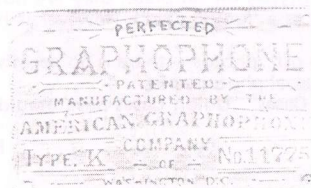 PERFECTED
GRAPHOPHONE
PATENTED
MANUFACTURED BY THE
AMERICAN GRAPHOPHONE
COMPANY
TYPE. K OF No.11725
WASHINGTON D.C.